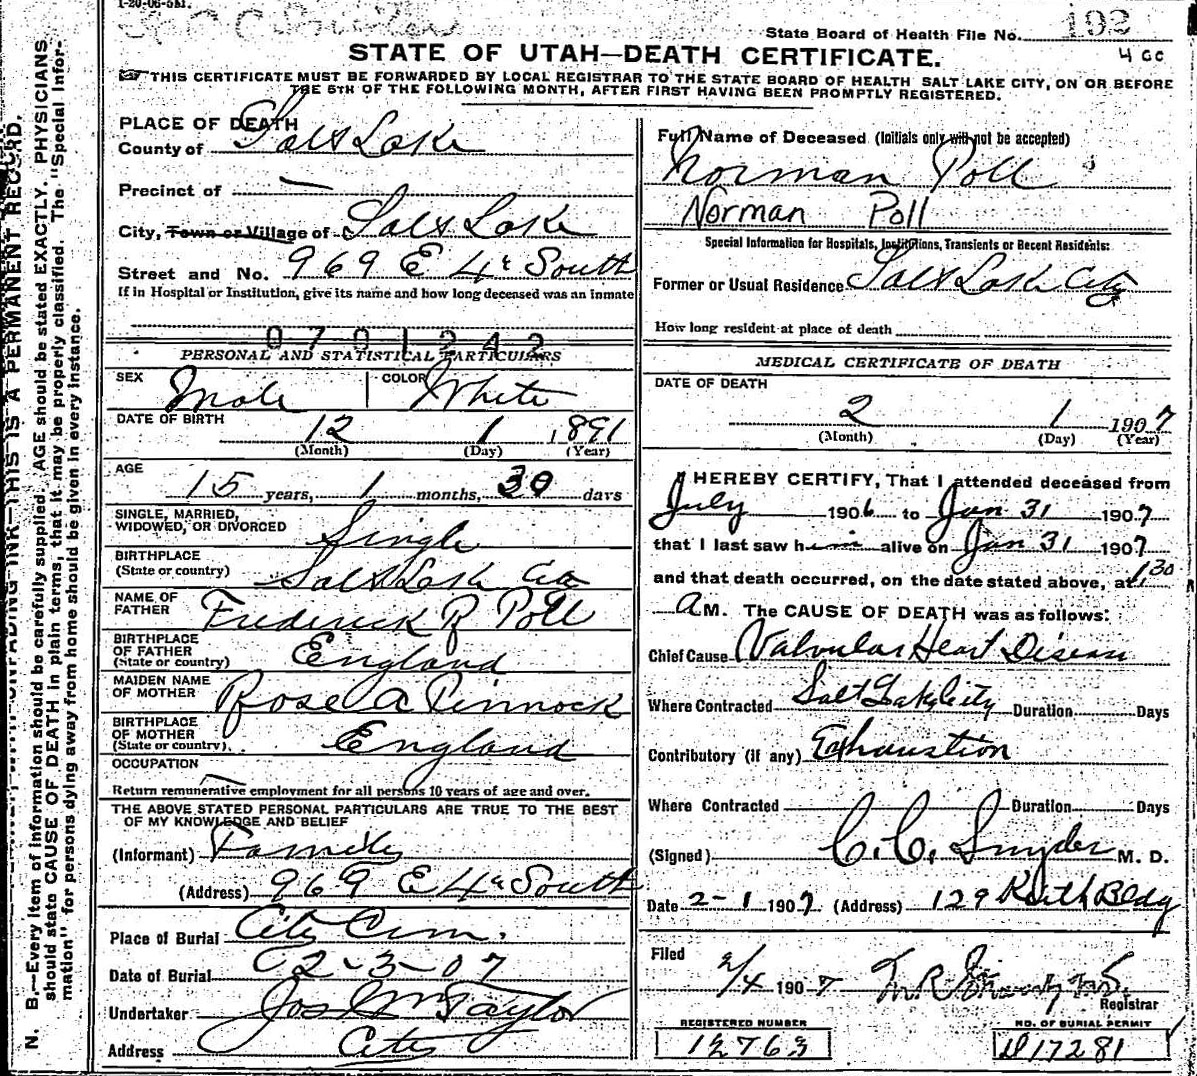 1-20-06-5M.
State Board of Health File No. 192
4 cc
STATE OF UTAH—DEATH CERTIFICATE.
THIS CERTIFICATE MUST BE FORWARDED BY LOCAL REGISTRAR TO THE STATE BOARD OF HEALTH SALT LAKE CITY, ON OR BEFORE
THE 5TH OF THE FOLLOWING MONTH, AFTER FIRST HAVING BEEN PROMPTLY REGISTERED.
PLACE OF DEATH
County of Salt Lake
Precinct of —
City, Town or Village of Salt Lake
Street and No. 969 E 4th South
If in Hospital or Institution, give its name and how long deceased was an inmate
0701242
PERSONAL AND STATISTICAL PARTICULARS
SEX Male COLOR White
DATE OF BIRTH 12 1 1891
(Month) (Day) (Year)
AGE 15 years, 1 months, 30 days
SINGLE, MARRIED,
WIDOWED, OR DIVORCED Single
BIRTHPLACE
(State or country) Salt Lake City
NAME OF
FATHER Frederick R Poll
BIRTHPLACE
OF FATHER
(State or country) England
MAIDEN NAME
OF MOTHER Rose A Pinnock
BIRTHPLACE
OF MOTHER
(State or country) England
OCCUPATION —
Return remunerative employment for all persons 10 years of age and over.
THE ABOVE STATED PERSONAL PARTICULARS ARE TRUE TO THE BEST
OF MY KNOWLEDGE AND BELIEF
(Informant) Family
(Address) 969 E 4th South
Place of Burial City Cem.
Date of Burial 2-3-07
Undertaker Jos Wm Taylor
Address City
Full Name of Deceased (Initials only will not be accepted)
Norman Poll
Norman Poll
Special Information for Hospitals, Institutions, Transients or Recent Residents:
Former or Usual Residence Salt Lake City
How long resident at place of death
MEDICAL CERTIFICATE OF DEATH
DATE OF DEATH
2 1 1907
(Month) (Day) (Year)
I HEREBY CERTIFY, That I attended deceased from
July 1906 to Jan 31 1907
that I last saw him alive on Jan 31 1907
and that death occurred, on the date stated above, at 1.30
A M. The CAUSE OF DEATH was as follows:
Chief Cause Valvular Heart Disease
Where Contracted Salt Lake City Duration Days
Contributory (if any) Exhaustion
Where Contracted Duration Days
(Signed) C. C. Snyder M. D.
Date 2-1 1907 (Address) 129 Keith Bldg
Filed 2/4 1907
Registrar
REGISTERED NUMBER
12763
NO. OF BURIAL PERMIT
D17281
N. B.—Every item of information should be carefully supplied. AGE should be stated EXACTLY. PHYSICIANS
should state CAUSE OF DEATH in plain terms, that it may be properly classified. The "Special Infor-
mation" for persons dying away from home should be given in every instance.
UNFADING INK—THIS IS A PERMANENT RECORD.